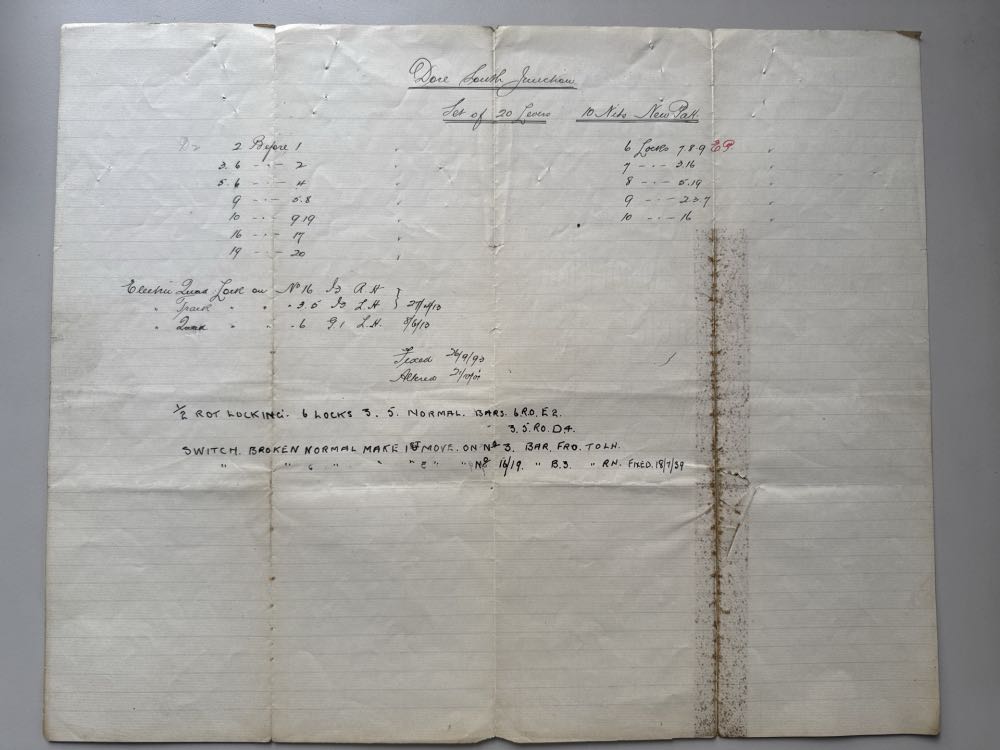 Dore South Junction
Set of 20 Levers 10 Nibs New Patt.
2 Before 1 "
3.6 - · - 2 "
5.6 - · - 4 "
9 - · - 5.8 "
10 - · - 9.19 "
16 - · - 17 "
19 - · - 20 "
6 Locks 7.8.9 E.P. "
7 - · - 3.16
8 - · - 5.19 "
9 - · - 2.3.7
10 - · - 16 "
Electric Quad Lock on No 16 R.H.
" Track " " " 3.5 L.H.
" Quad " " " 6 G.1 L.H. 8/6/13
Fixed 26/9/93
Altered
1/2 ROT LOCKING. 6 LOCKS 3. 5. NORMAL. BARS. 6.RO. E2.
" 3.5.RO. D4.
SWITCH. BROKEN NORMAL MAKE 1ST MOVE. ON No 3. BAR. FRO. TO LH.
" " " " " " " No 16/19. " B.3. " RN. FIXED. 18/7/39